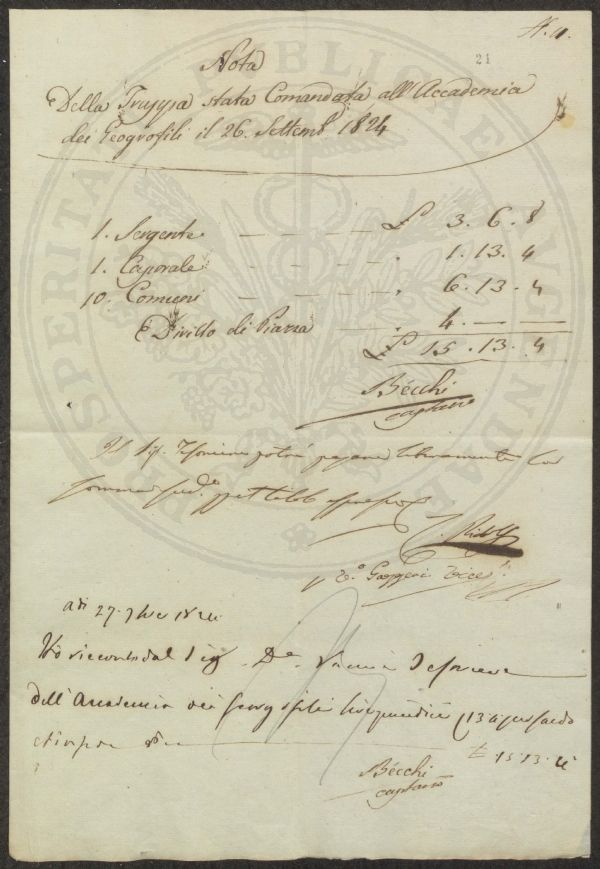 N. 11.
21
Nota
Della Truppa stata Comandata all'Accademia
dei Georgofili il 26. Settemb. 1824
1. Sergente — — — — £ 3. 6. 8
1. Caporale — — — — „ 1. 13. 4
10. Comuni — — — — „ 6. 13. 4
E Diritto di Piazza — — „ 4. — —
£ 15. 13. 4
Bécchi
capitano
Il Sig. Tesoriere potrà pagare liberamente la
somma sud.a per titolo espresso
C. Ridolfi
V.o Gazzeri Vice
PROSPERITATI PUBLICAE AUGENDAE
a dì 27. 7bre 1824
Ho ricevuto dal Sig. De. Tesoriere
dell'Accademia dei Georgofili lire quindici 13.4 per saldo
£ 15. 13. 4
Bécchi
capitano